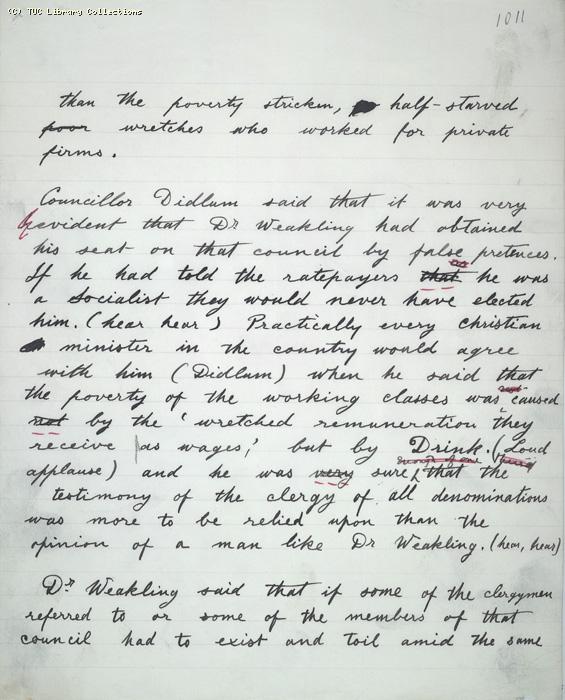 (C) TUC Library Collections
1011
than the poverty stricken, half-starved
poor wretches who worked for private
firms.
Councillor Didlum said that it was very
evident that Dr Weakling had obtained
his seat on that council by false pretences.
If he had told the ratepayers that he was
a Socialist they would never have elected
him. (hear hear) Practically every Christian
minister in the country would agree
with him (Didlum) when he said that
the poverty of the working classes was caused
not
not by the 'wretched remuneration they
receive as wages,' but by Drink. (Loud
applause) and he was very sure that the
testimony of the clergy of all denominations
was more to be relied upon than the
opinion of a man like Dr Weakling. (hear, hear)
Dr Weakling said that if some of the clergymen
referred to or some of the members of that
council had to exist and toil amid the same